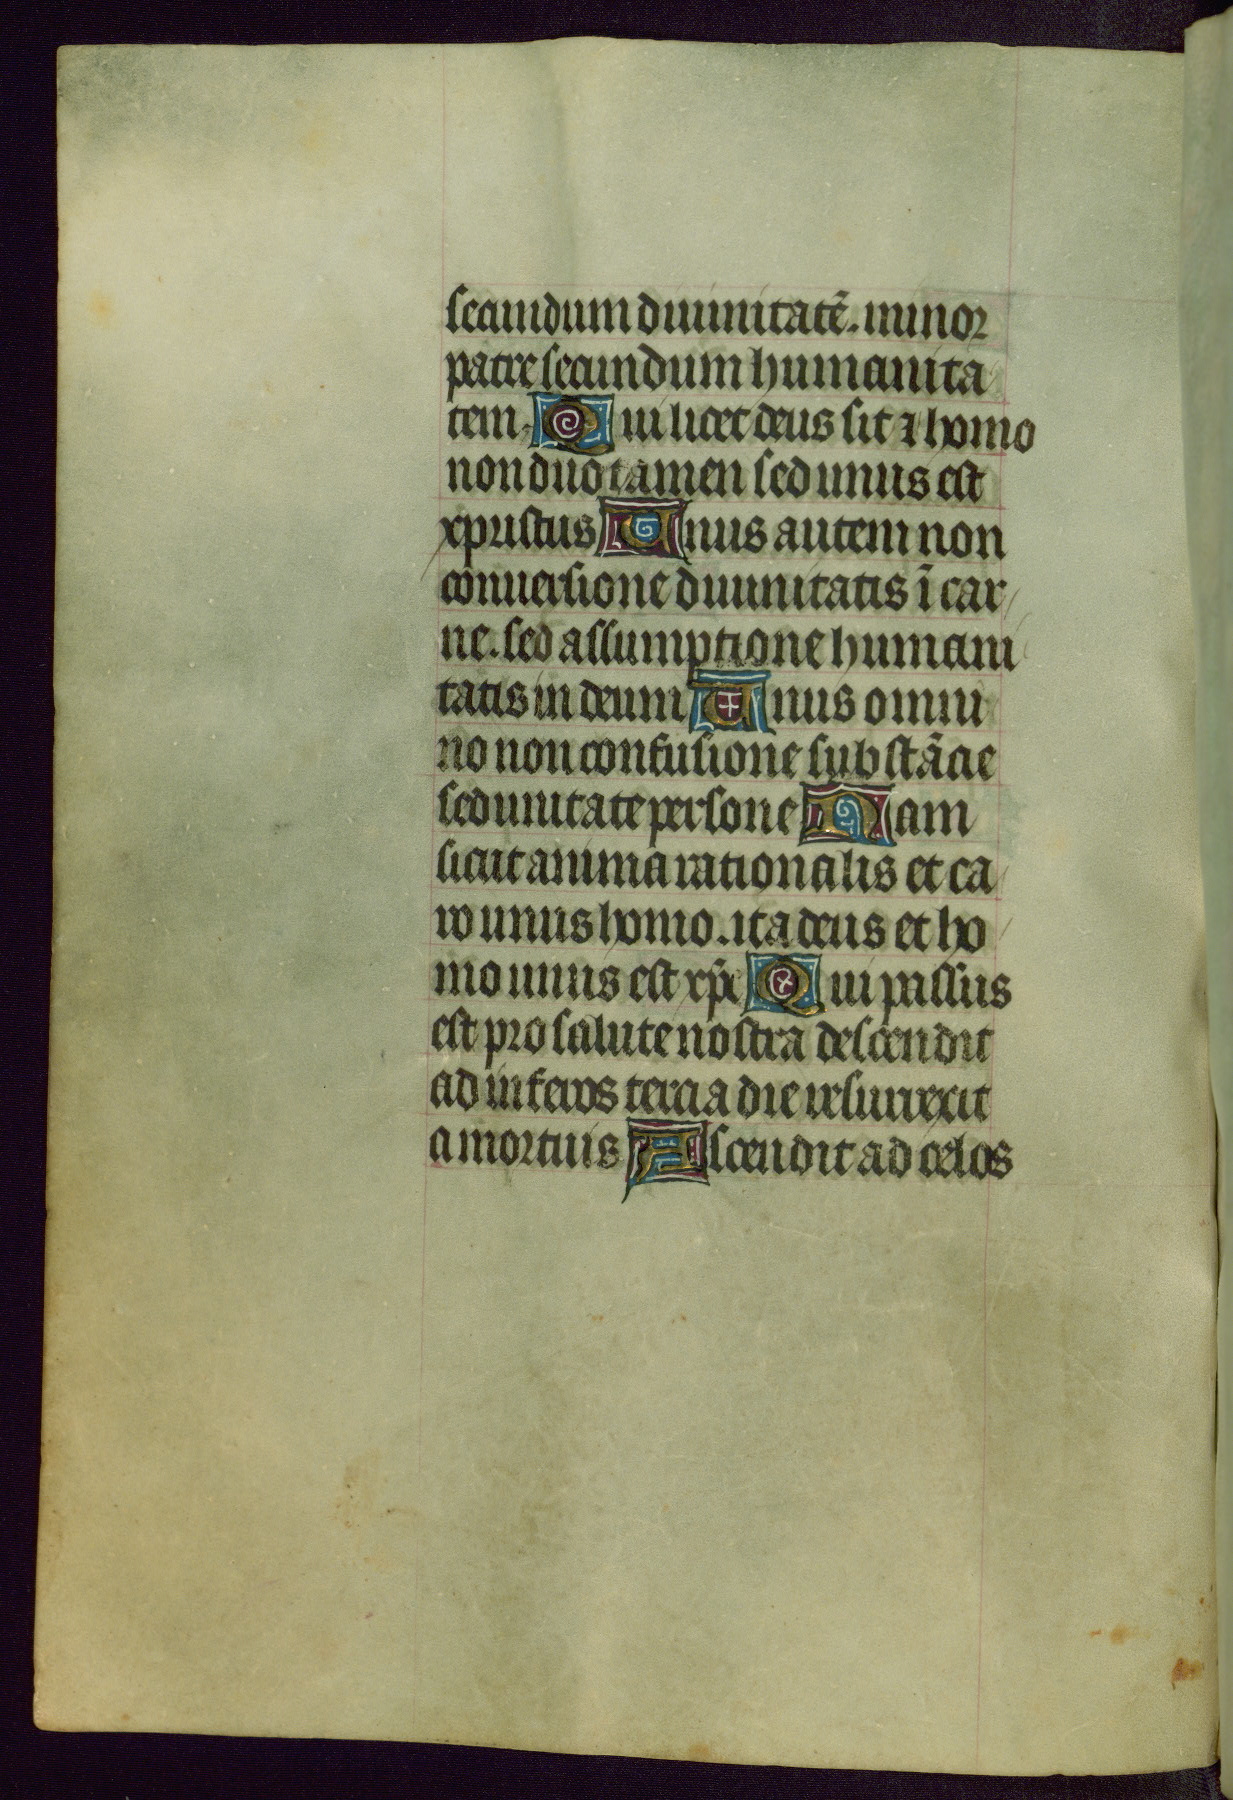 secundum diuinitatē. minor
patre secundum humanita
tem. Qui licet deus sit ⁊ homo
non duo tamen sed unus est
xpristus Unus autem non
conuersione diuinitatis ī car
ne. sed assumptione humani
tatis in deum Unus omni
no non confusione substācie
sed unitate persone Nam
sicut anima rationalis et ca
ro unus homo. ita deus et ho
mo unus est xp̄c Qui passus
est pro salute nostra descendit
ad inferos tercia die resurrexit
a mortuis Ascendit ad celos